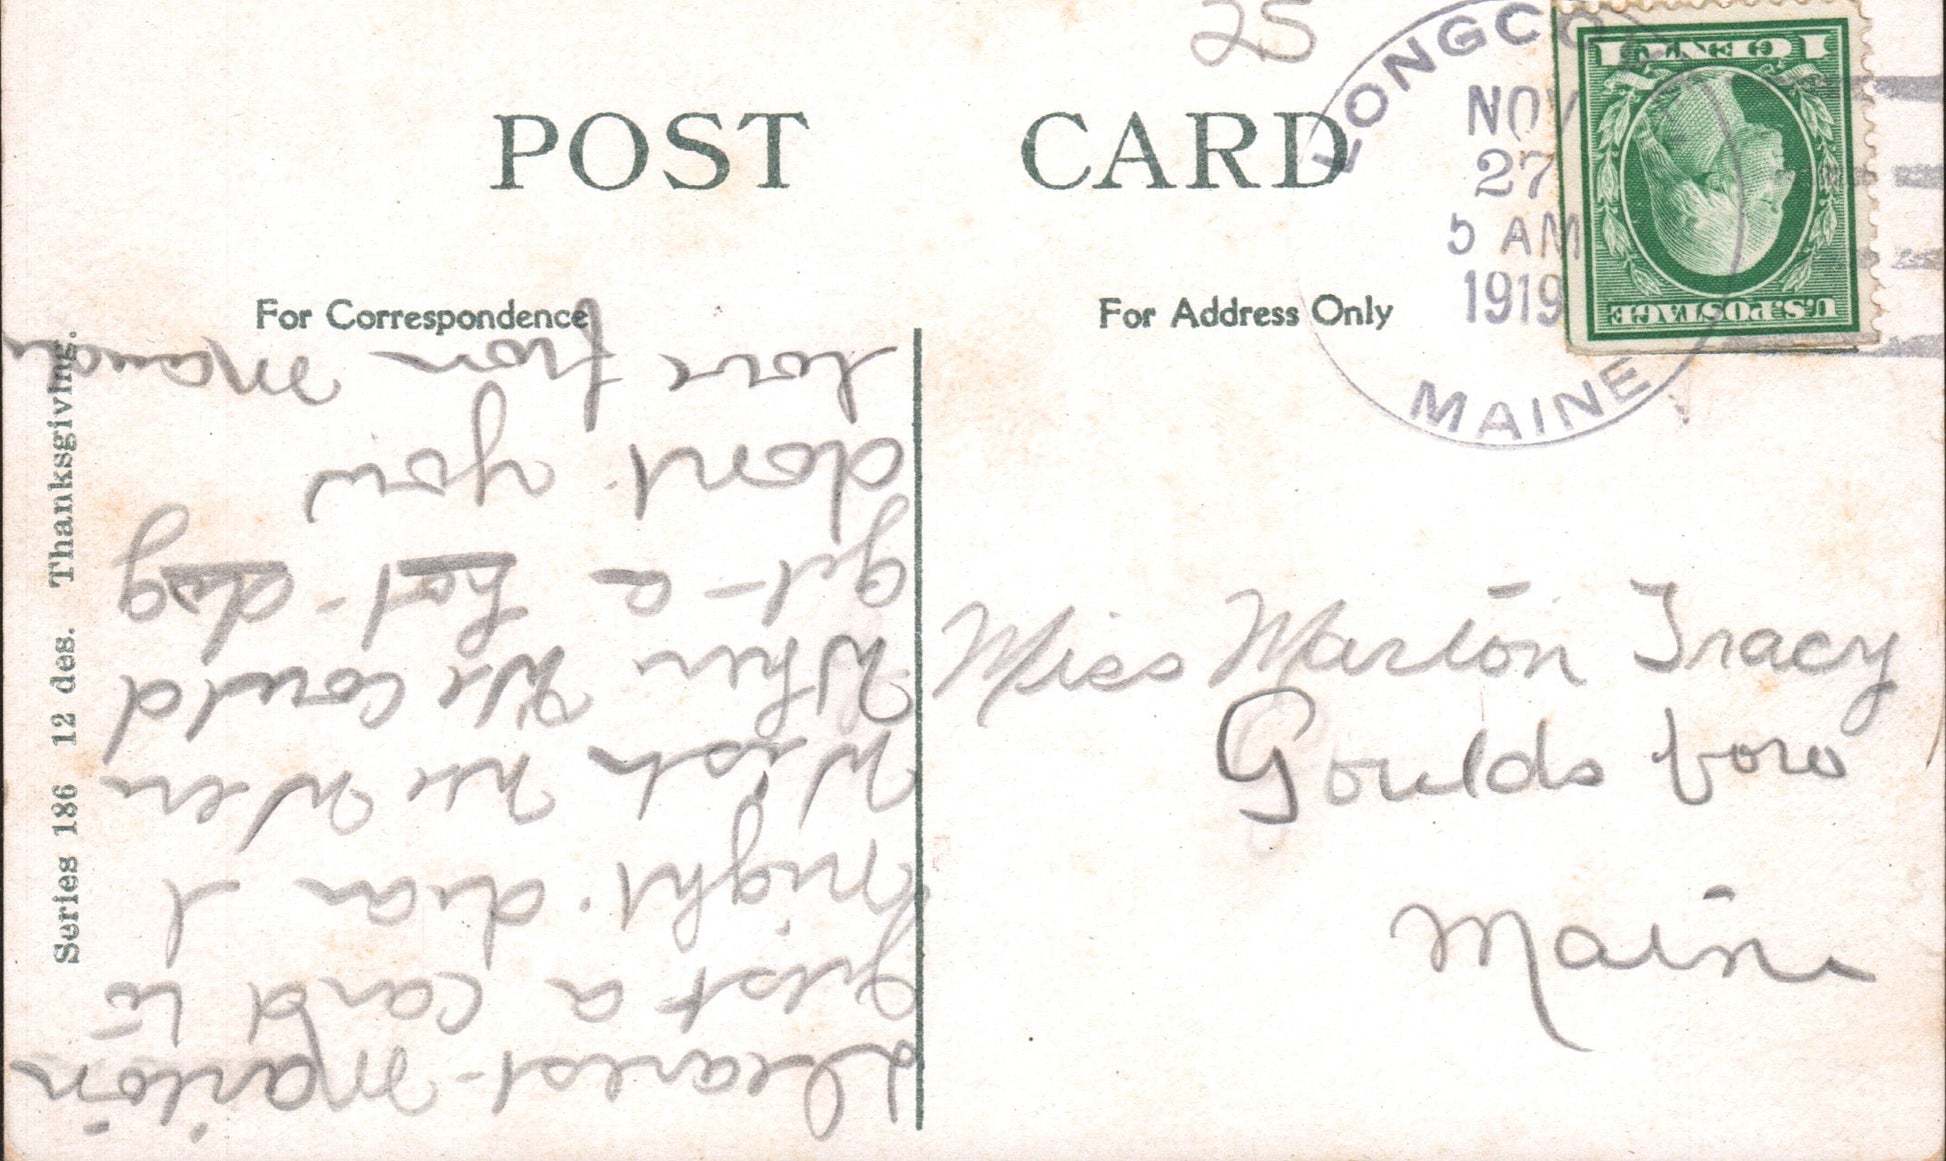 25
POST CARD
For Correspondence
For Address Only
LONGCO
NOV
27
5 AM
1919
MAINE
U.S. POSTAGE
1 CENT 1
Series 186 12 des. Thanksgiving.
Dearest Marion
Just a card to
night. dear I
Wish we Were
When We Could
get a hot dog
dont you
love from
Miss Marion Tracy
Gouldsboro
Maine